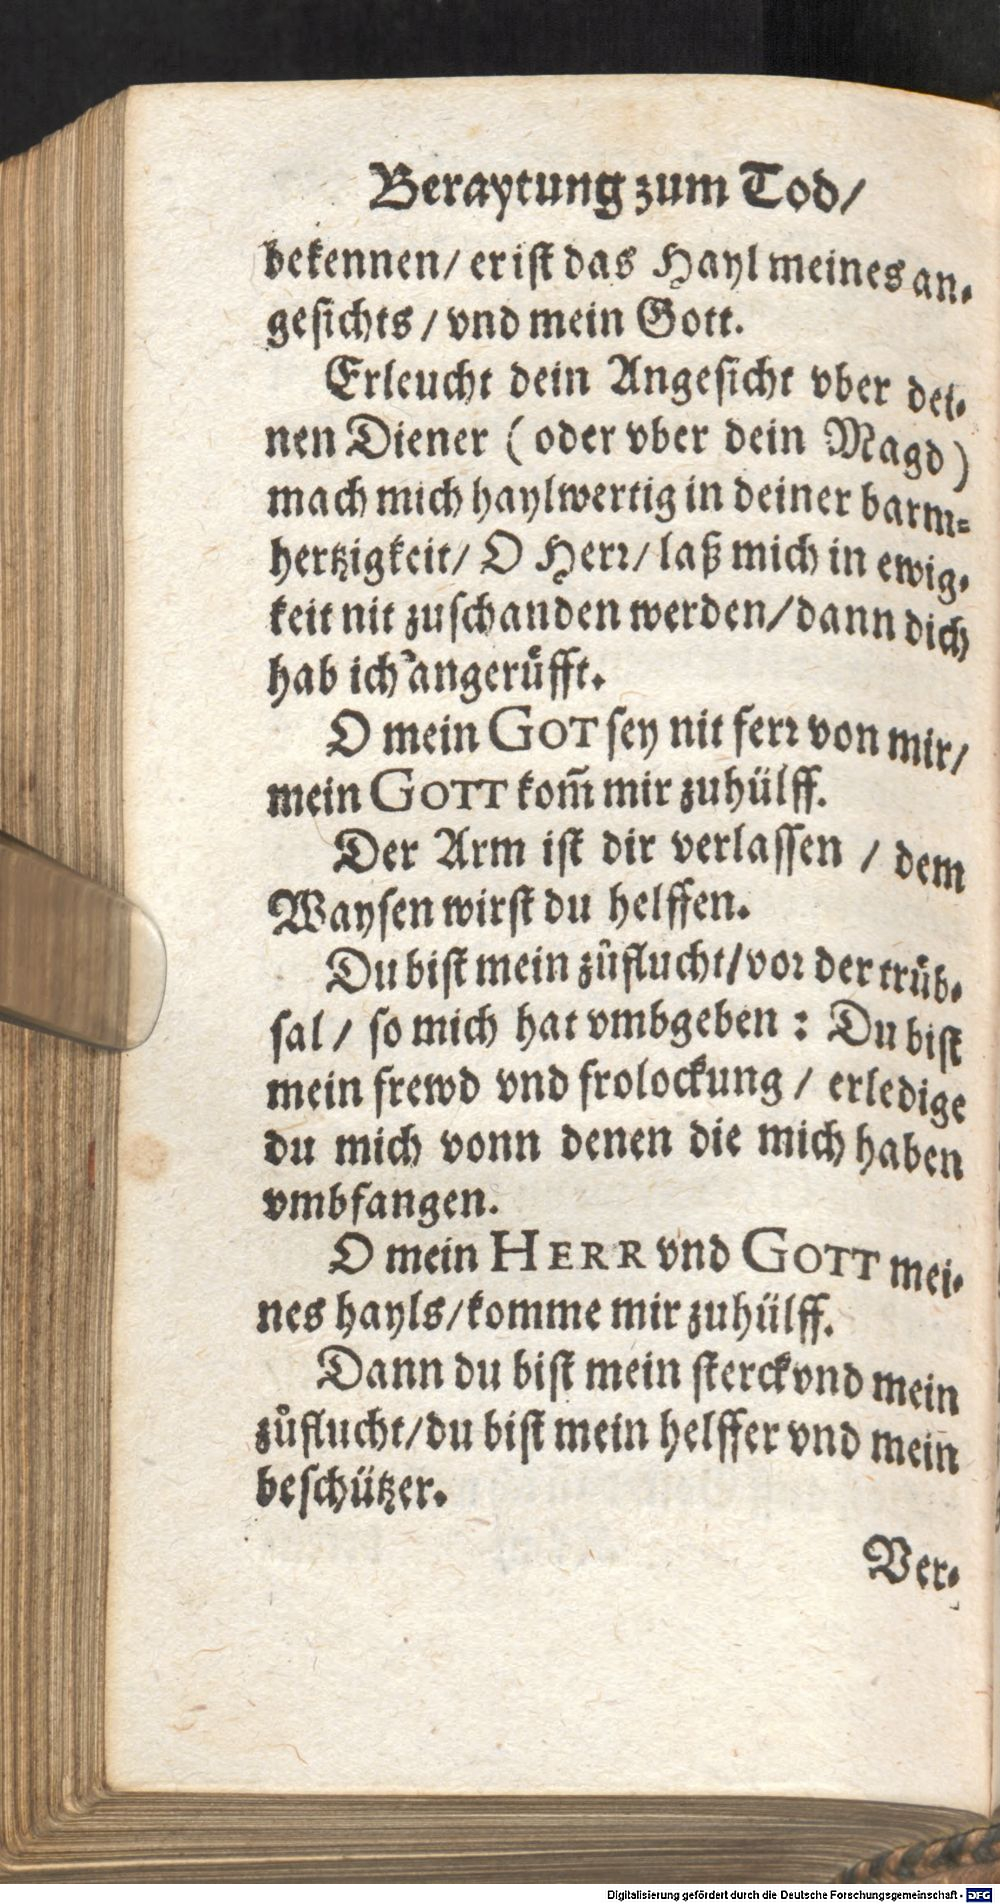 Beraytung zum Tod/
bekennen/ er ist das Hayl meines an-
gesichts / vnd mein Gott.
Erleucht dein Angesicht vber dei-
nen Diener ( oder vber dein Magd )
mach mich haylwertig in deiner barm-
hertzigkeit/ O Herr/ laß mich in ewig-
keit nit zu schanden werden/ dann dich
hab ich angerüfft.
O mein GOT sey nit ferr von mir/
mein GOTT kom̃ mir zuhülff.
Der Arm ist dir verlassen / dem
Waysen wirst du helffen.
Du bist mein zůflucht/ vor der trüb-
sal / so mich hat vmbgeben : Du bist
mein frewd vnd frolockung / erledige
du mich vonn denen die mich haben
vmbfangen.
O mein HERR vnd GOTT mei-
nes hayls/ komme mir zuhülff.
Dann du bist mein sterck vnd mein
zůflucht/ du bist mein helffer vnd mein
beschützer.
Ver-
Digitalisierung gefördert durch die Deutsche Forschungsgemeinschaft - DFG